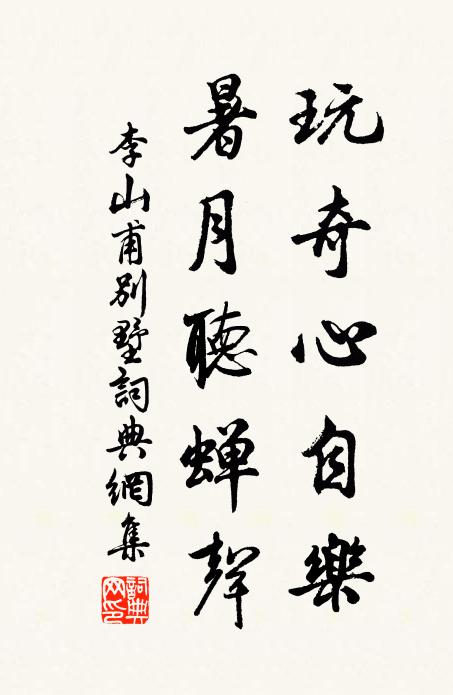 玩奇心自樂
暑月聽蟬聲
李山甫別墅詞典網集
詞典网印